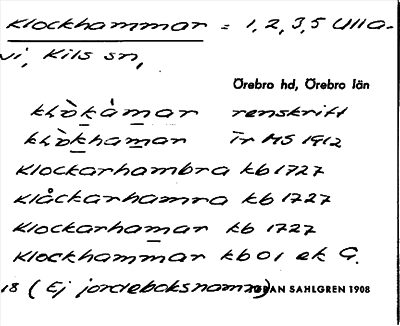 Klockhammar = 1, 2, 3, 5 Ulla-
vi, Kils sn,
Örebro hd, Örebro län
klòkàmar renskrift
klòkhamar Tr MS 1912
Klockarhambra kb 1727
Klåckarhamra kb 1727
Klockarhamar kb 1727
Klockhammar kb 01 ek G.
18 (Ej jordeboksnamn) JÖRAN SAHLGREN 1908